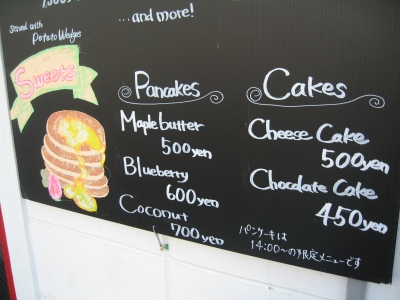 ...and more!
Served with
Potato Wedges
Sweets
Pancakes
Maple butter
500yen
Blueberry
600yen
Coconut
700yen
Cakes
Cheese Cake
500yen
Chocolate Cake
450yen
パンケーキは
14:00〜の限定メニューです